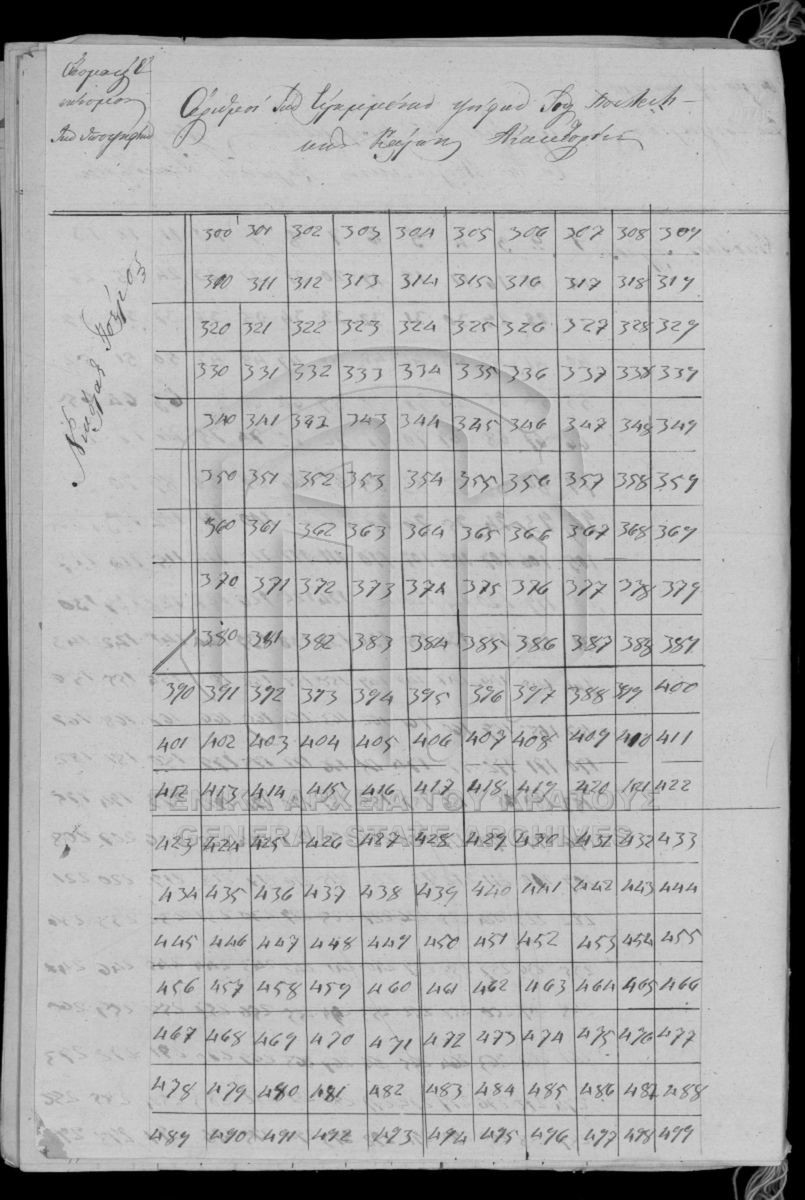 Αριθμοί των
Νικόλαος
300 301 302 303 304 305 306 307 308 309
310 311 312 313 314 315 316 317 318 319
320 321 322 323 324 325 326 327 328 329
330 331 332 333 334 335 336 337 338 339
340 341 342 343 344 345 346 347 348 349
350 351 352 353 354 355 356 357 358 359
360 361 362 363 364 365 366 367 368 369
370 371 372 373 374 375 376 377 378 379
380 381 382 383 384 385 386 387 388 389
390 391 392 393 394 395 396 397 398 399 400
401 402 403 404 405 406 407 408 409 410 411
412 413 414 415 416 417 418 419 420 421 422
ΓΕΝΙΚΑ ΑΡΧΕΙΑ ΤΟΥ ΚΡΑΤΟΥΣ
GENERAL STATE ARCHIVES
423 424 425 426 427 428 429 430 431 432 433
434 435 436 437 438 439 440 441 442 443 444
445 446 447 448 449 450 451 452 453 454 455
456 457 458 459 460 461 462 463 464 465 466
467 468 469 470 471 472 473 474 475 476 477
478 479 480 481 482 483 484 485 486 487 488
489 490 491 492 493 494 495 496 497 498 499